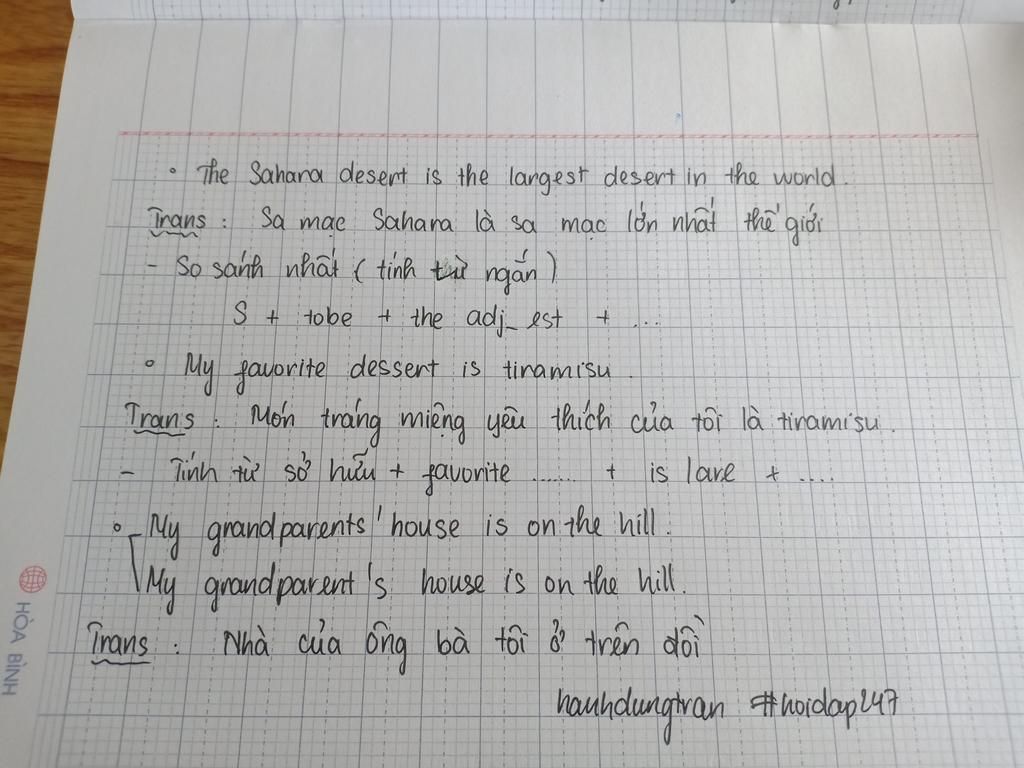 • The Sahara desert is the largest desert in the world.
Trans : Sa mạc Sahara là sa mạc lớn nhất thế giới
- So sánh nhất ( tính từ ngắn )
S + tobe + the adj_est + ...
• My favorite dessert is tiramisu.
Trans : Món tráng miệng yêu thích của tôi là tiramisu.
- Tính từ sở hữu + favorite ....... + is lare + ....
• My grandparents' house is on the hill.
My grandparent's house is on the hill.
Trans : Nhà của ông bà tôi ở trên đồi
hanhdungtran #hoidap247
HÒA BÌNH